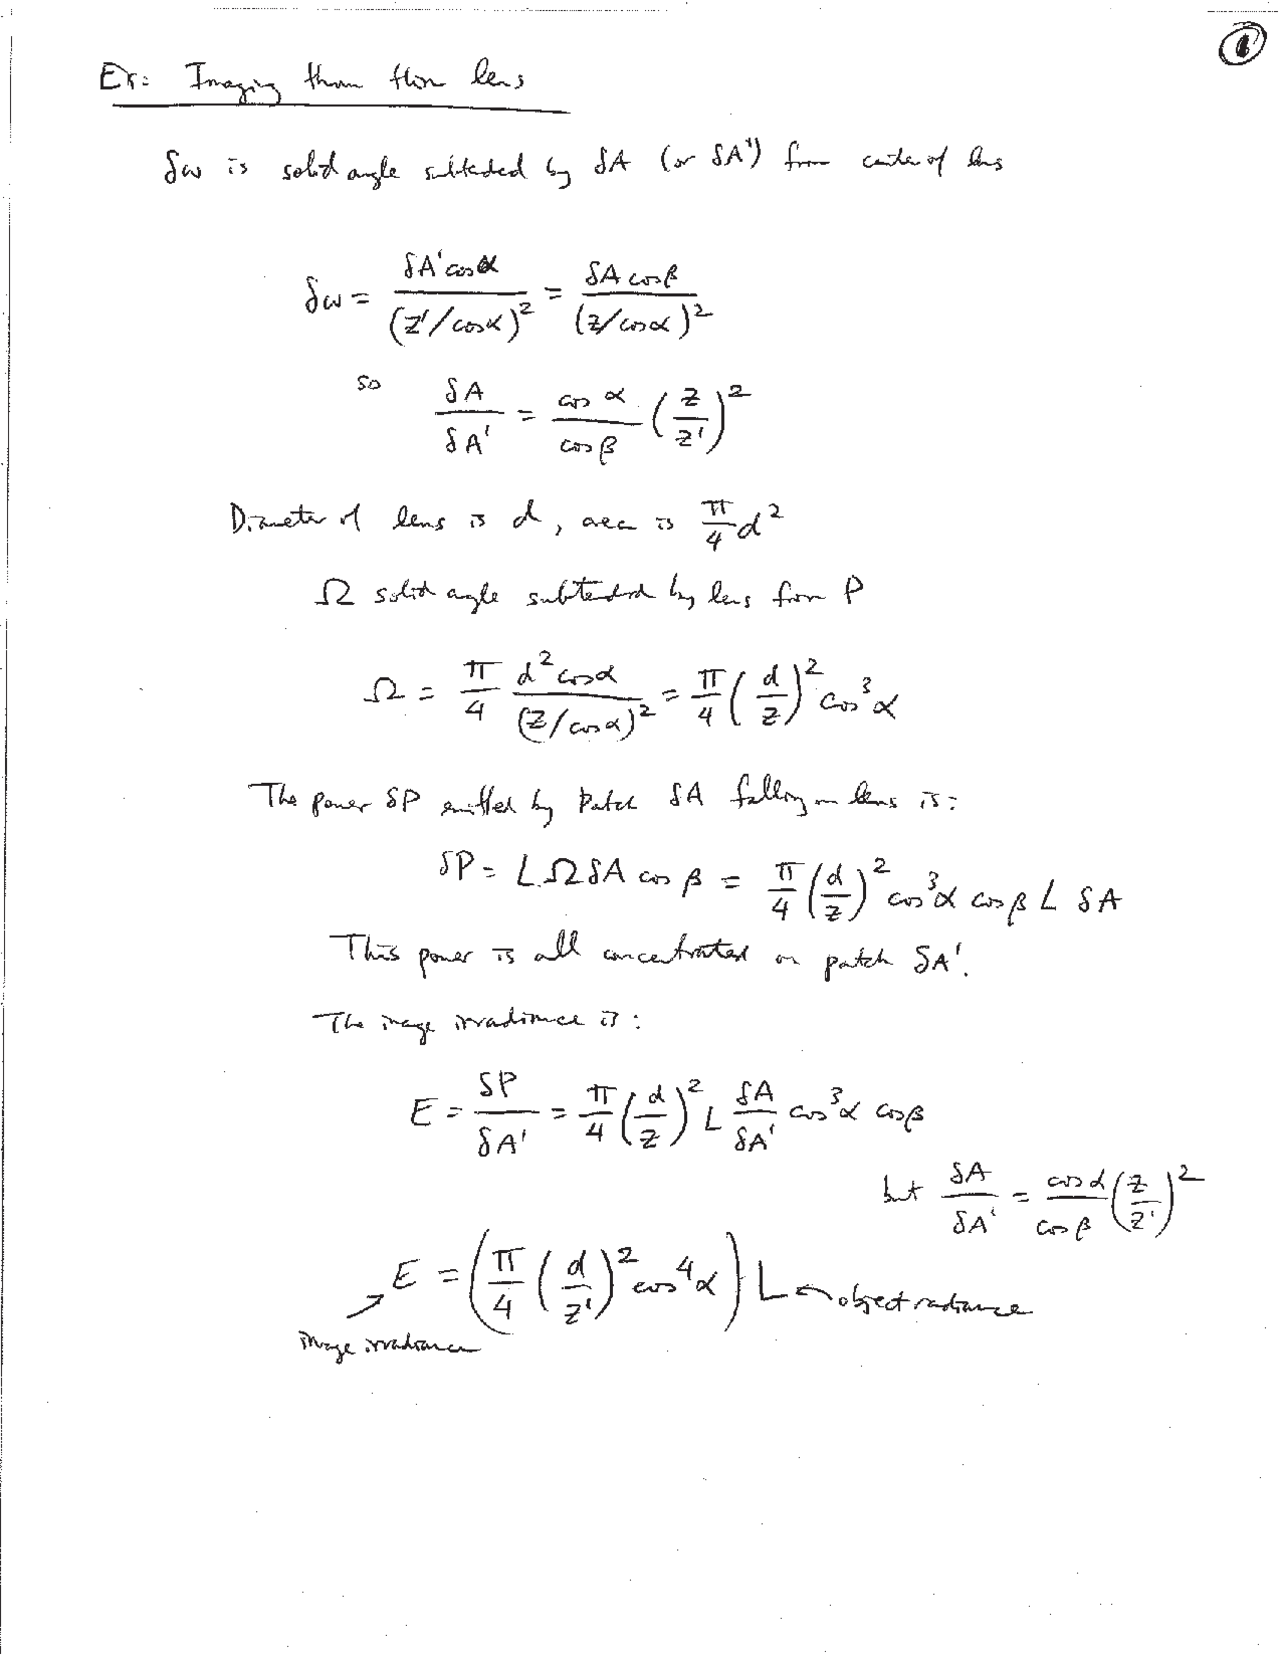 ①
Ex: Imaging thru thin lens
δω is solid angle subtended by δA (or δA') from center of lens
δω = δA' cosα / (z'/cosα)² = δA cosβ / (z/cosα)²
so δA / δA' = cos α / cosβ (z / z')²
Diameter of lens is d, area is π/4 d²
Ω solid angle subtended by lens from P
Ω = π/4 d² cosα / (z/cosα)² = π/4 (d/z)² cos³α
The power δP emitted by patch δA falling on lens is:
δP = L Ω δA cos β = π/4 (d/z)² cos³α cosβ L δA
This power is all concentrated on patch δA'.
The image irradiance is:
E = δP / δA' = π/4 (d/z)² L δA / δA' cos³α cosβ
but δA / δA' = cosα / cosβ (z / z')²
E = (π/4 (d/z')² cos⁴α) L ← object radiance
image irradiance